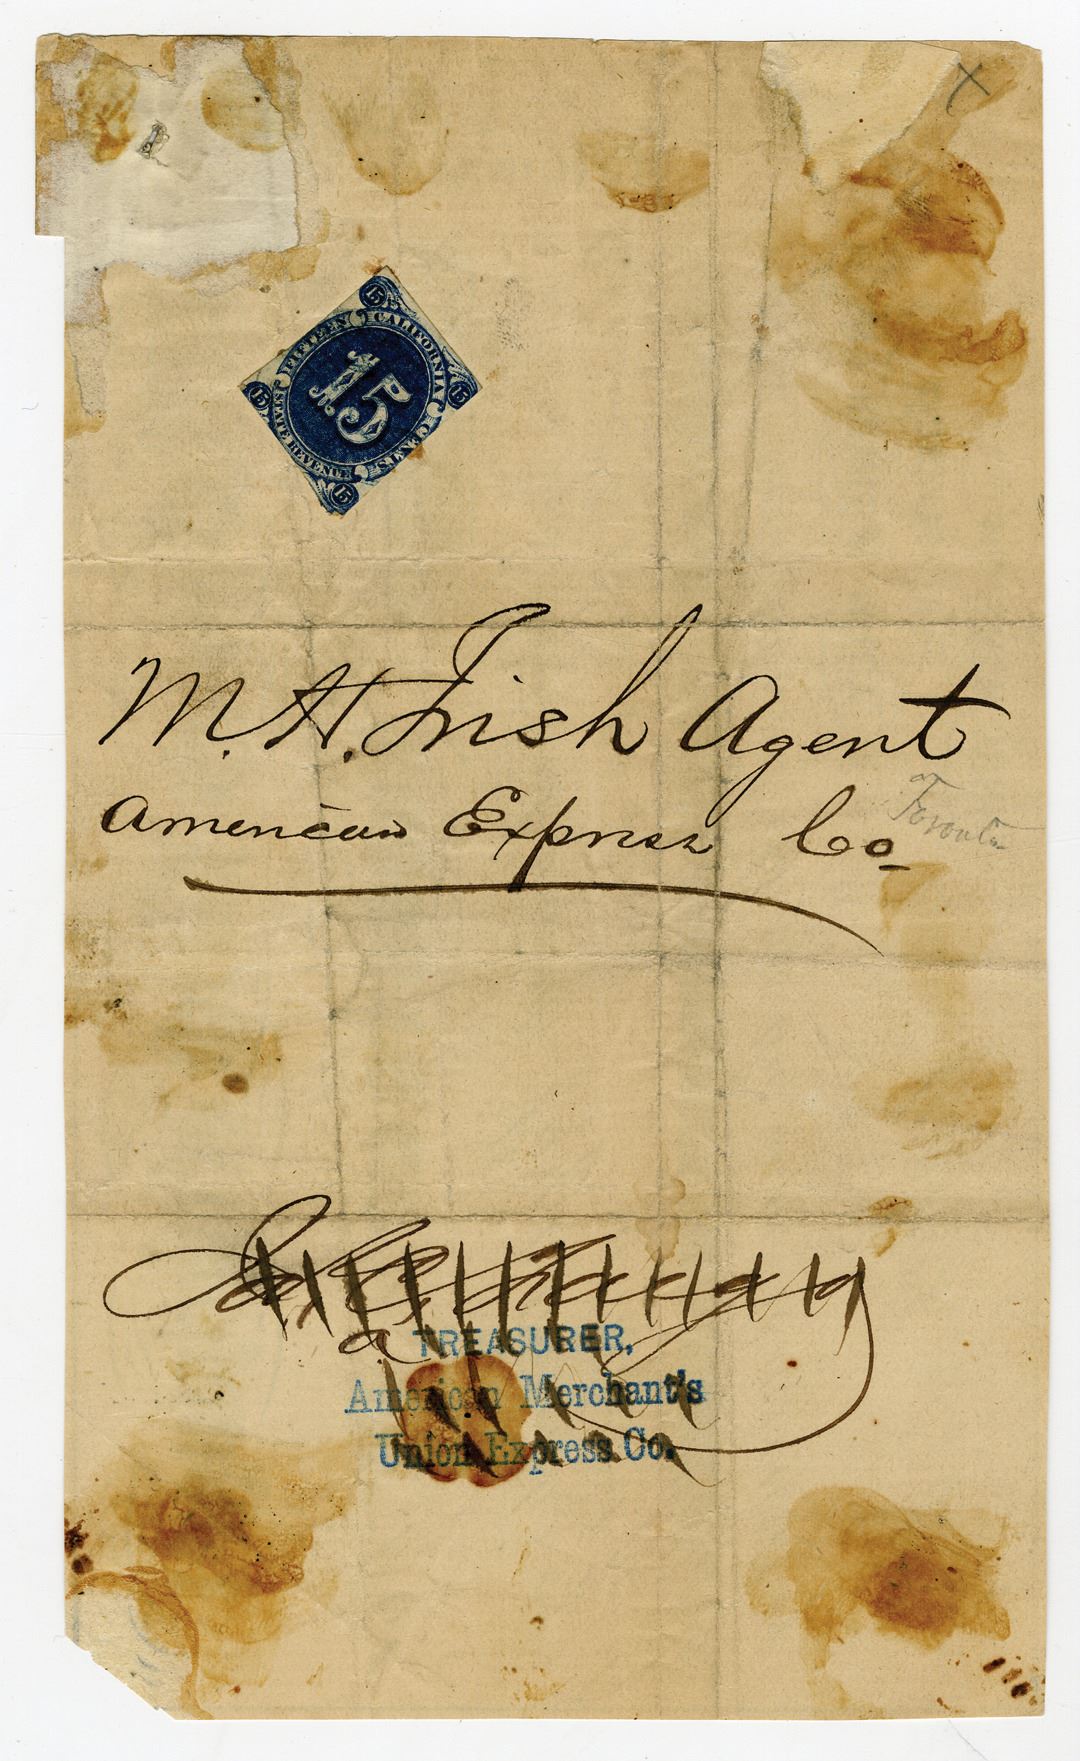 X
FIFTEEN CALIFORNIA
15 15 15 15
15
STATE REVENUE CENTS.
M. H. Irish Agent
American Express Co
Toronto
TREASURER,
American Merchant's
Union Express Co.